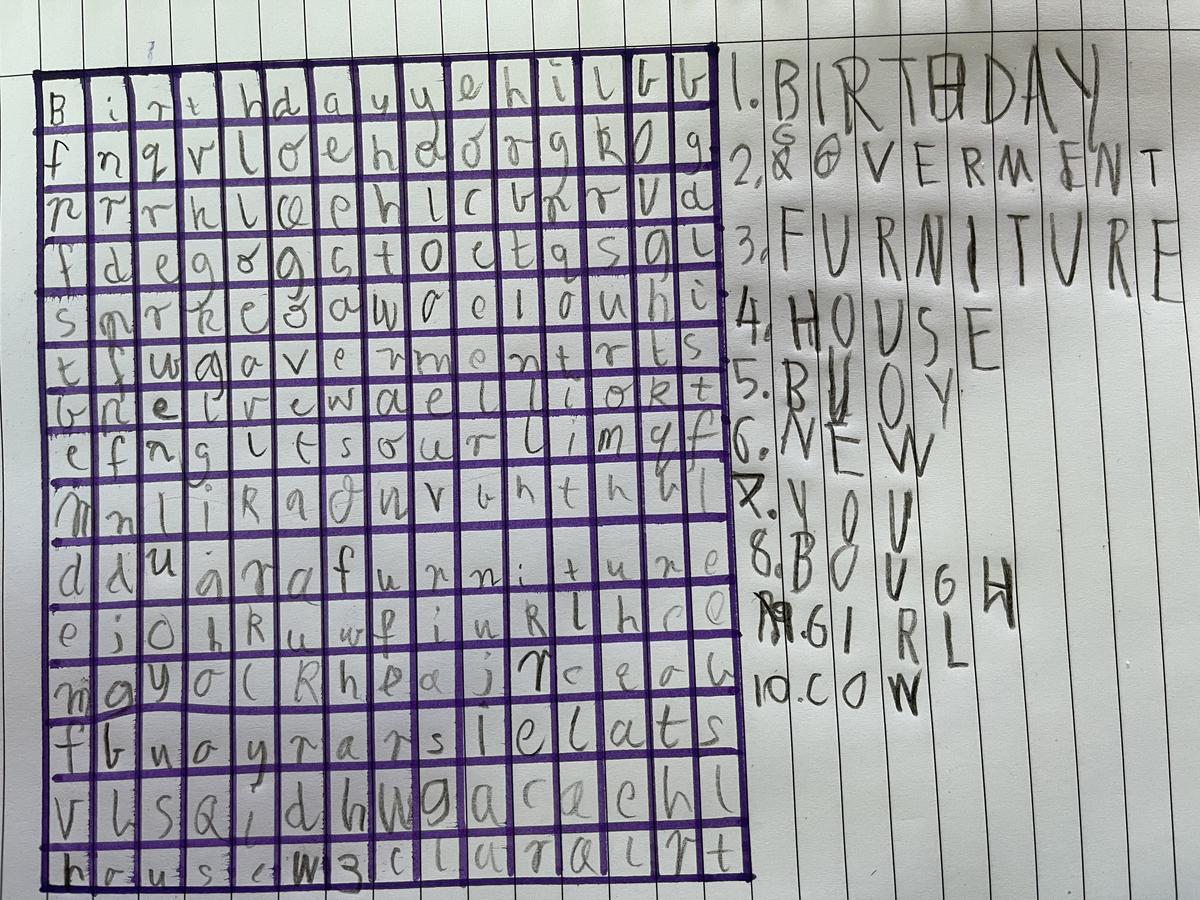 B i r t h d a y y e h i l b b
f n q v l o e h d o r g k o g
n r r k l o e h l c b k r v d
f d e g o g s t o e t q s g l
s n r k e 3 a w o e l o u h i
t f w g o v e r m e n t r t s
b n e l v e w a e l l i o k t
e f n g l t s o u r l i m q f
m n l i k q o n v b h t h b l
d d u i r a f u r n i t u r e
e j o h k u w f i u k l h c o
m a y o c k h e a j r c e a b
f b u o y r a r s i e l a t s
v l s a i d h w g a c a e h l
h o u s e w 3 c l a r a l r t
1. BIRTHDAY
2. GOVERMENT
3. FURNITURE
4. HOUSE
5. BUOY
6. NEW
7. YOU
8. BOUGH
9. GIRL
10. COW